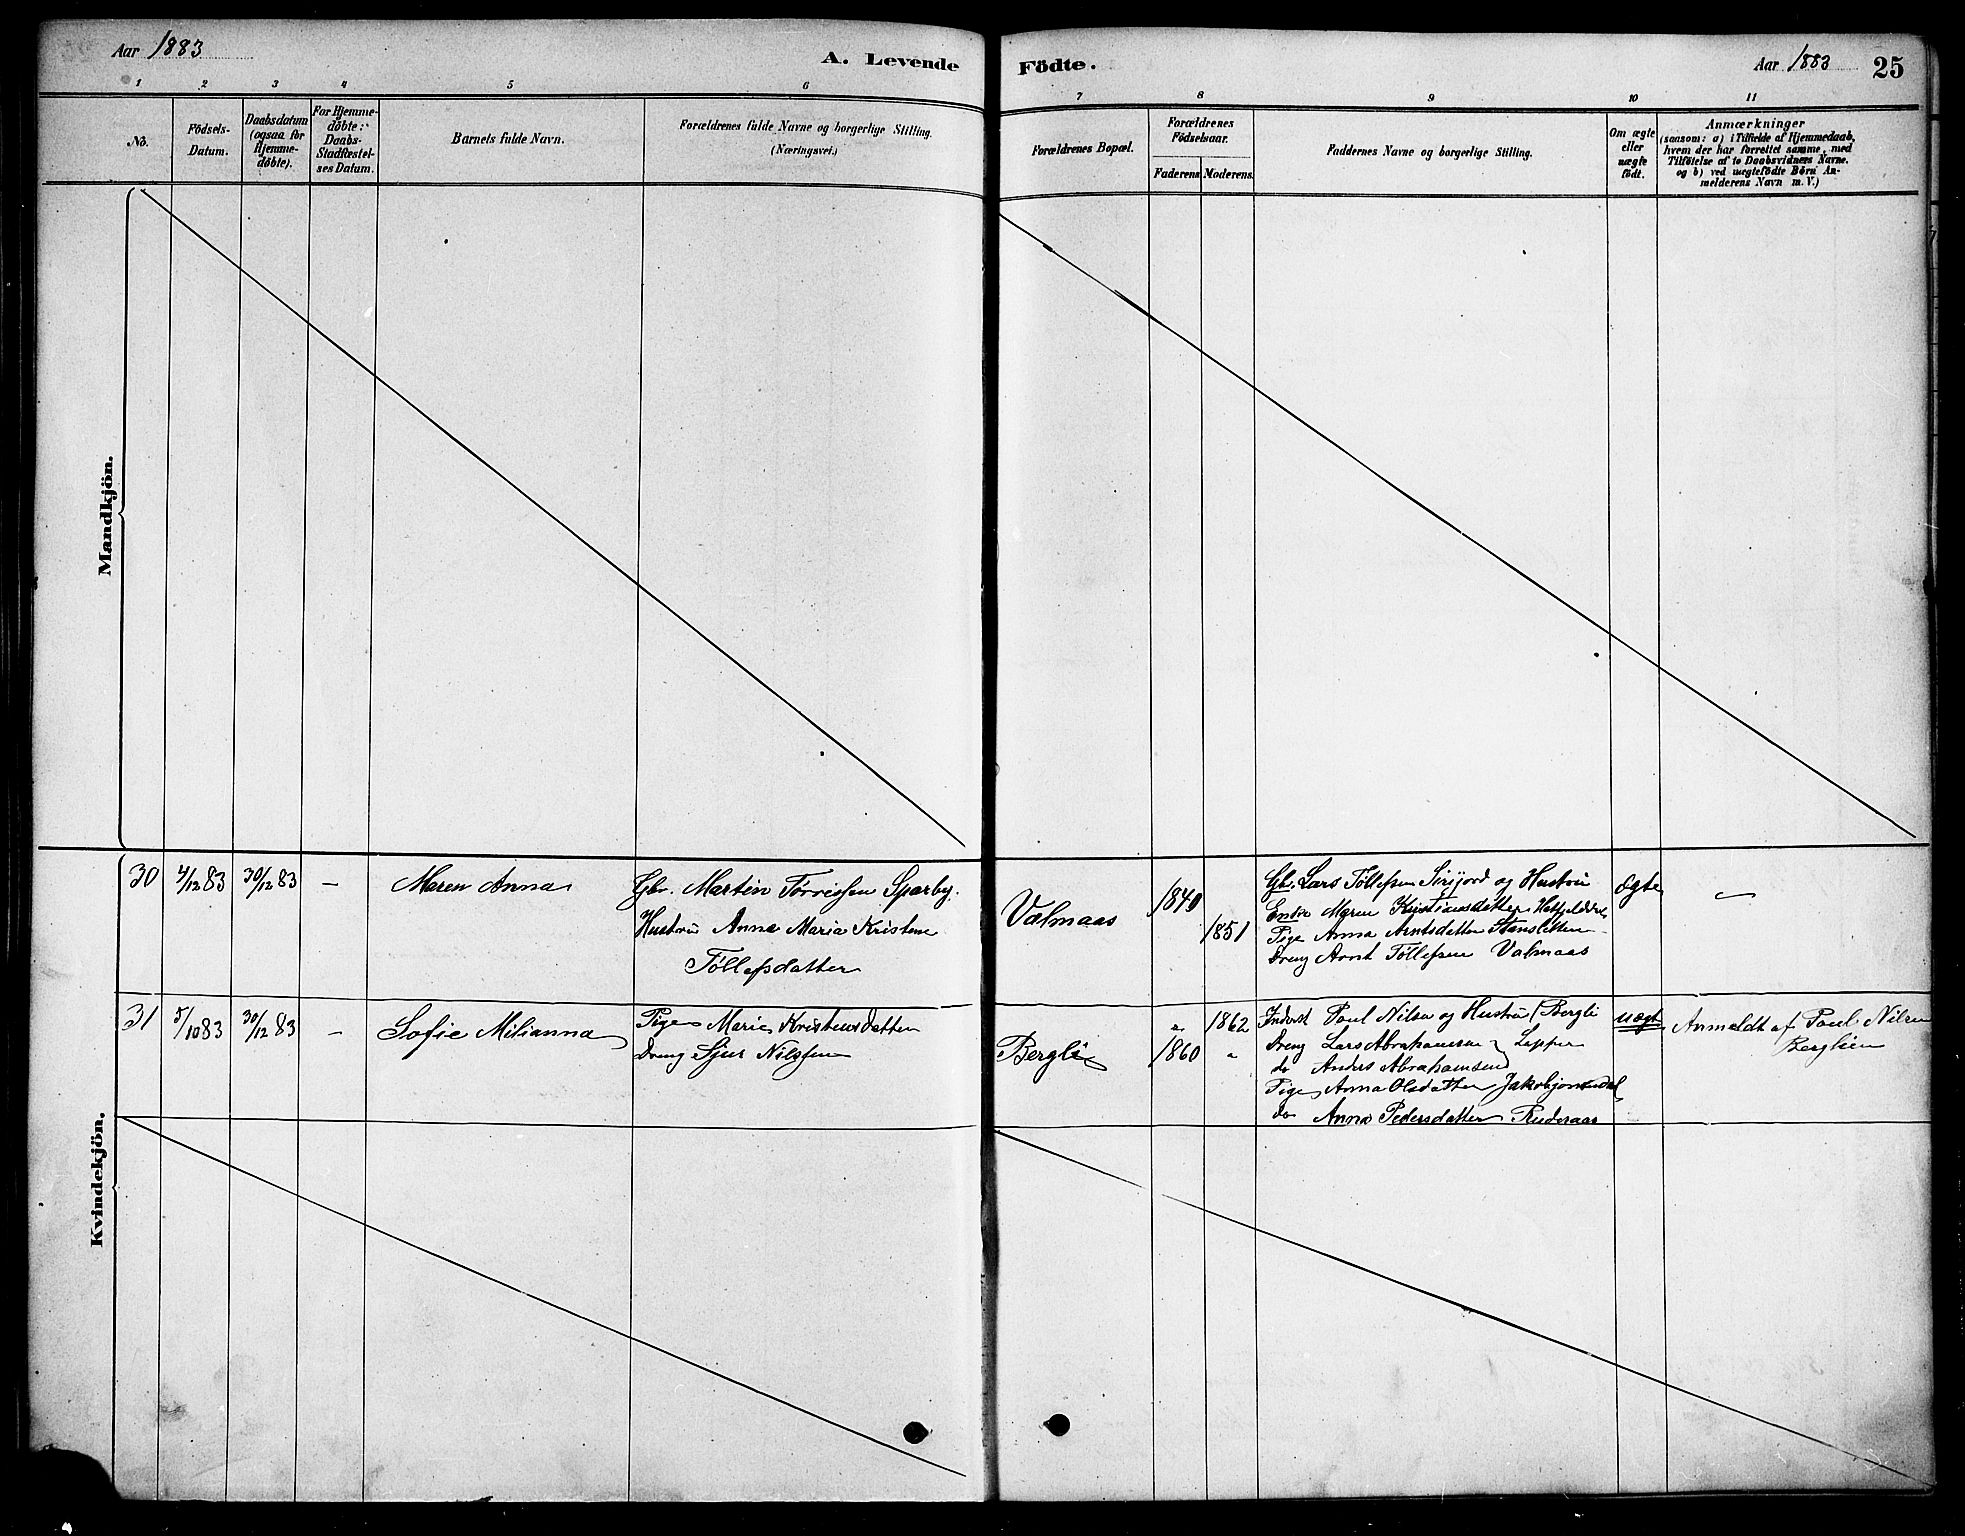 Aar 1883
A. Levende
Födte.
Aar 1883
25
1 2 3 4 5 6 7 8 9 10 11
No.
Födsels-
Datum.
Daabsdatum
(ogsaa for
Hjemme-
döbte).
For Hjemme-
döbte:
Daabs-
Stadfæstel-
ses Datum.
Barnets fulde Navn.
Forældrenes fulde Navne og borgerlige Stilling.
(Næringsvei.)
Forældrenes Bopæl.
Forældrenes
Födselsaar.
Faderens
Moderens.
Faddernes Navne og borgerlige Stilling.
Om ægte
eller
uægte
födt.
Anmærkninger
(saasom: a) i Tilfælde af Hjemmedaab,
hvem der har forrettet samme, med
Tilföielse af to Daabsvidners Navne.
og b) ved uægtefödte Börn An-
melderens Navn m. V.)
Mandkjön.
Kvindekjön.
30
4/12 83
30/12 83
—
Maren Anna
Gbr. Martin Sparby.
Hustru Anna Maria Kristine
Töllefsdatter
Valmaas
1840
1851
Gbr. Lars Töllefsen Sirijord og Hustru
Enke Maren Kristiansdatter
Pige Anna Arntsdatter
Dreng Arnt Töllefsen Valmaas
ægte
—
31
5/10 83
30/12 83
—
Sofie Milianna
Pige Marie Kristensdatter
Dreng Sjur Nilssen
Bergli
" 1862
1860 "
Inderst Poul Nilsen og Hustru Bergli
Dreng Lars Abrahamsen
do Anders Abrahamsen
Lapper
Pige Anna Olsdatter
do Anna Pedersdatter
uægte
Anmeldt af Poul Nilsen
Berglien